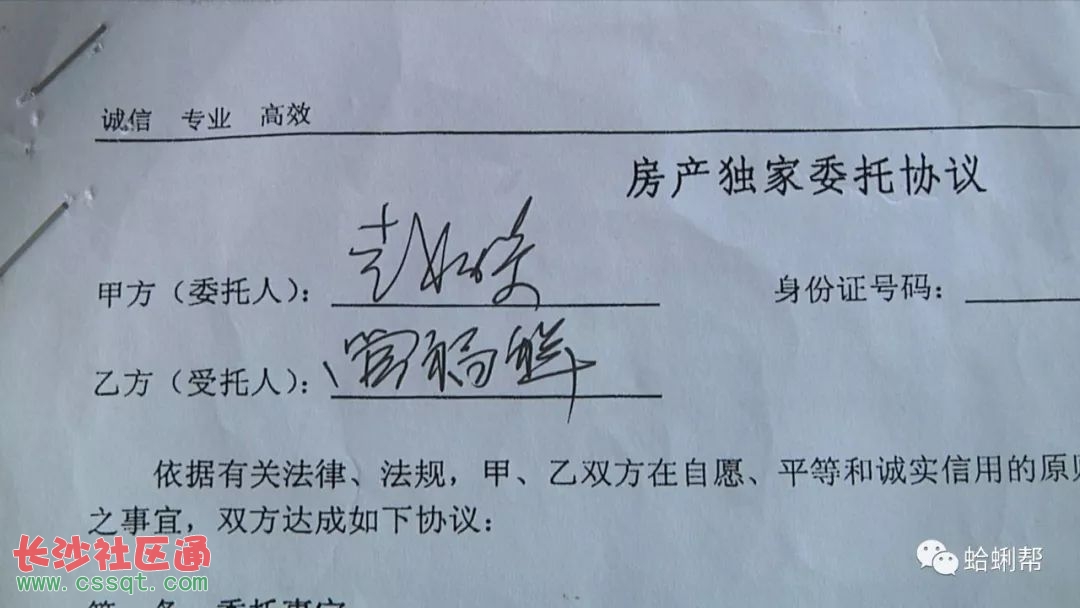 诚信 专业 高效
房产独家委托协议
甲方（委托人）： 身份证号码：
乙方（受托人）：
依据有关法律、法规，甲、乙双方在自愿、平等和诚实信用的原则
之事宜，双方达成如下协议：
委托事宜
长沙社区通
www.cssqt.com
蛤蜊帮